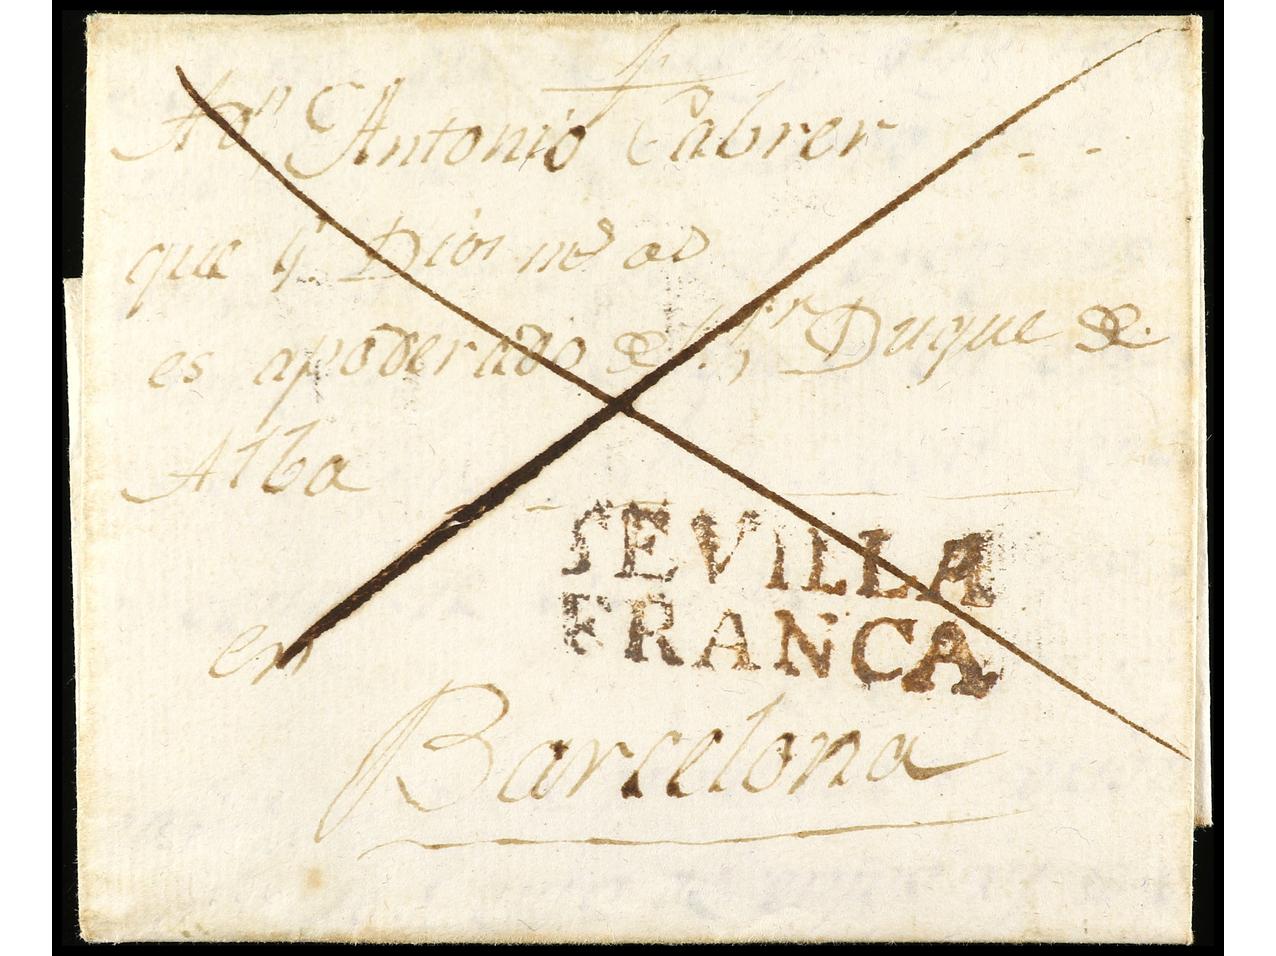 A Dn Antonio Cabrer
que gͤ Dios ms as
es apoderado del Sr Duque de
Alba
SEVILLA
FRANCA
en
Barcelona